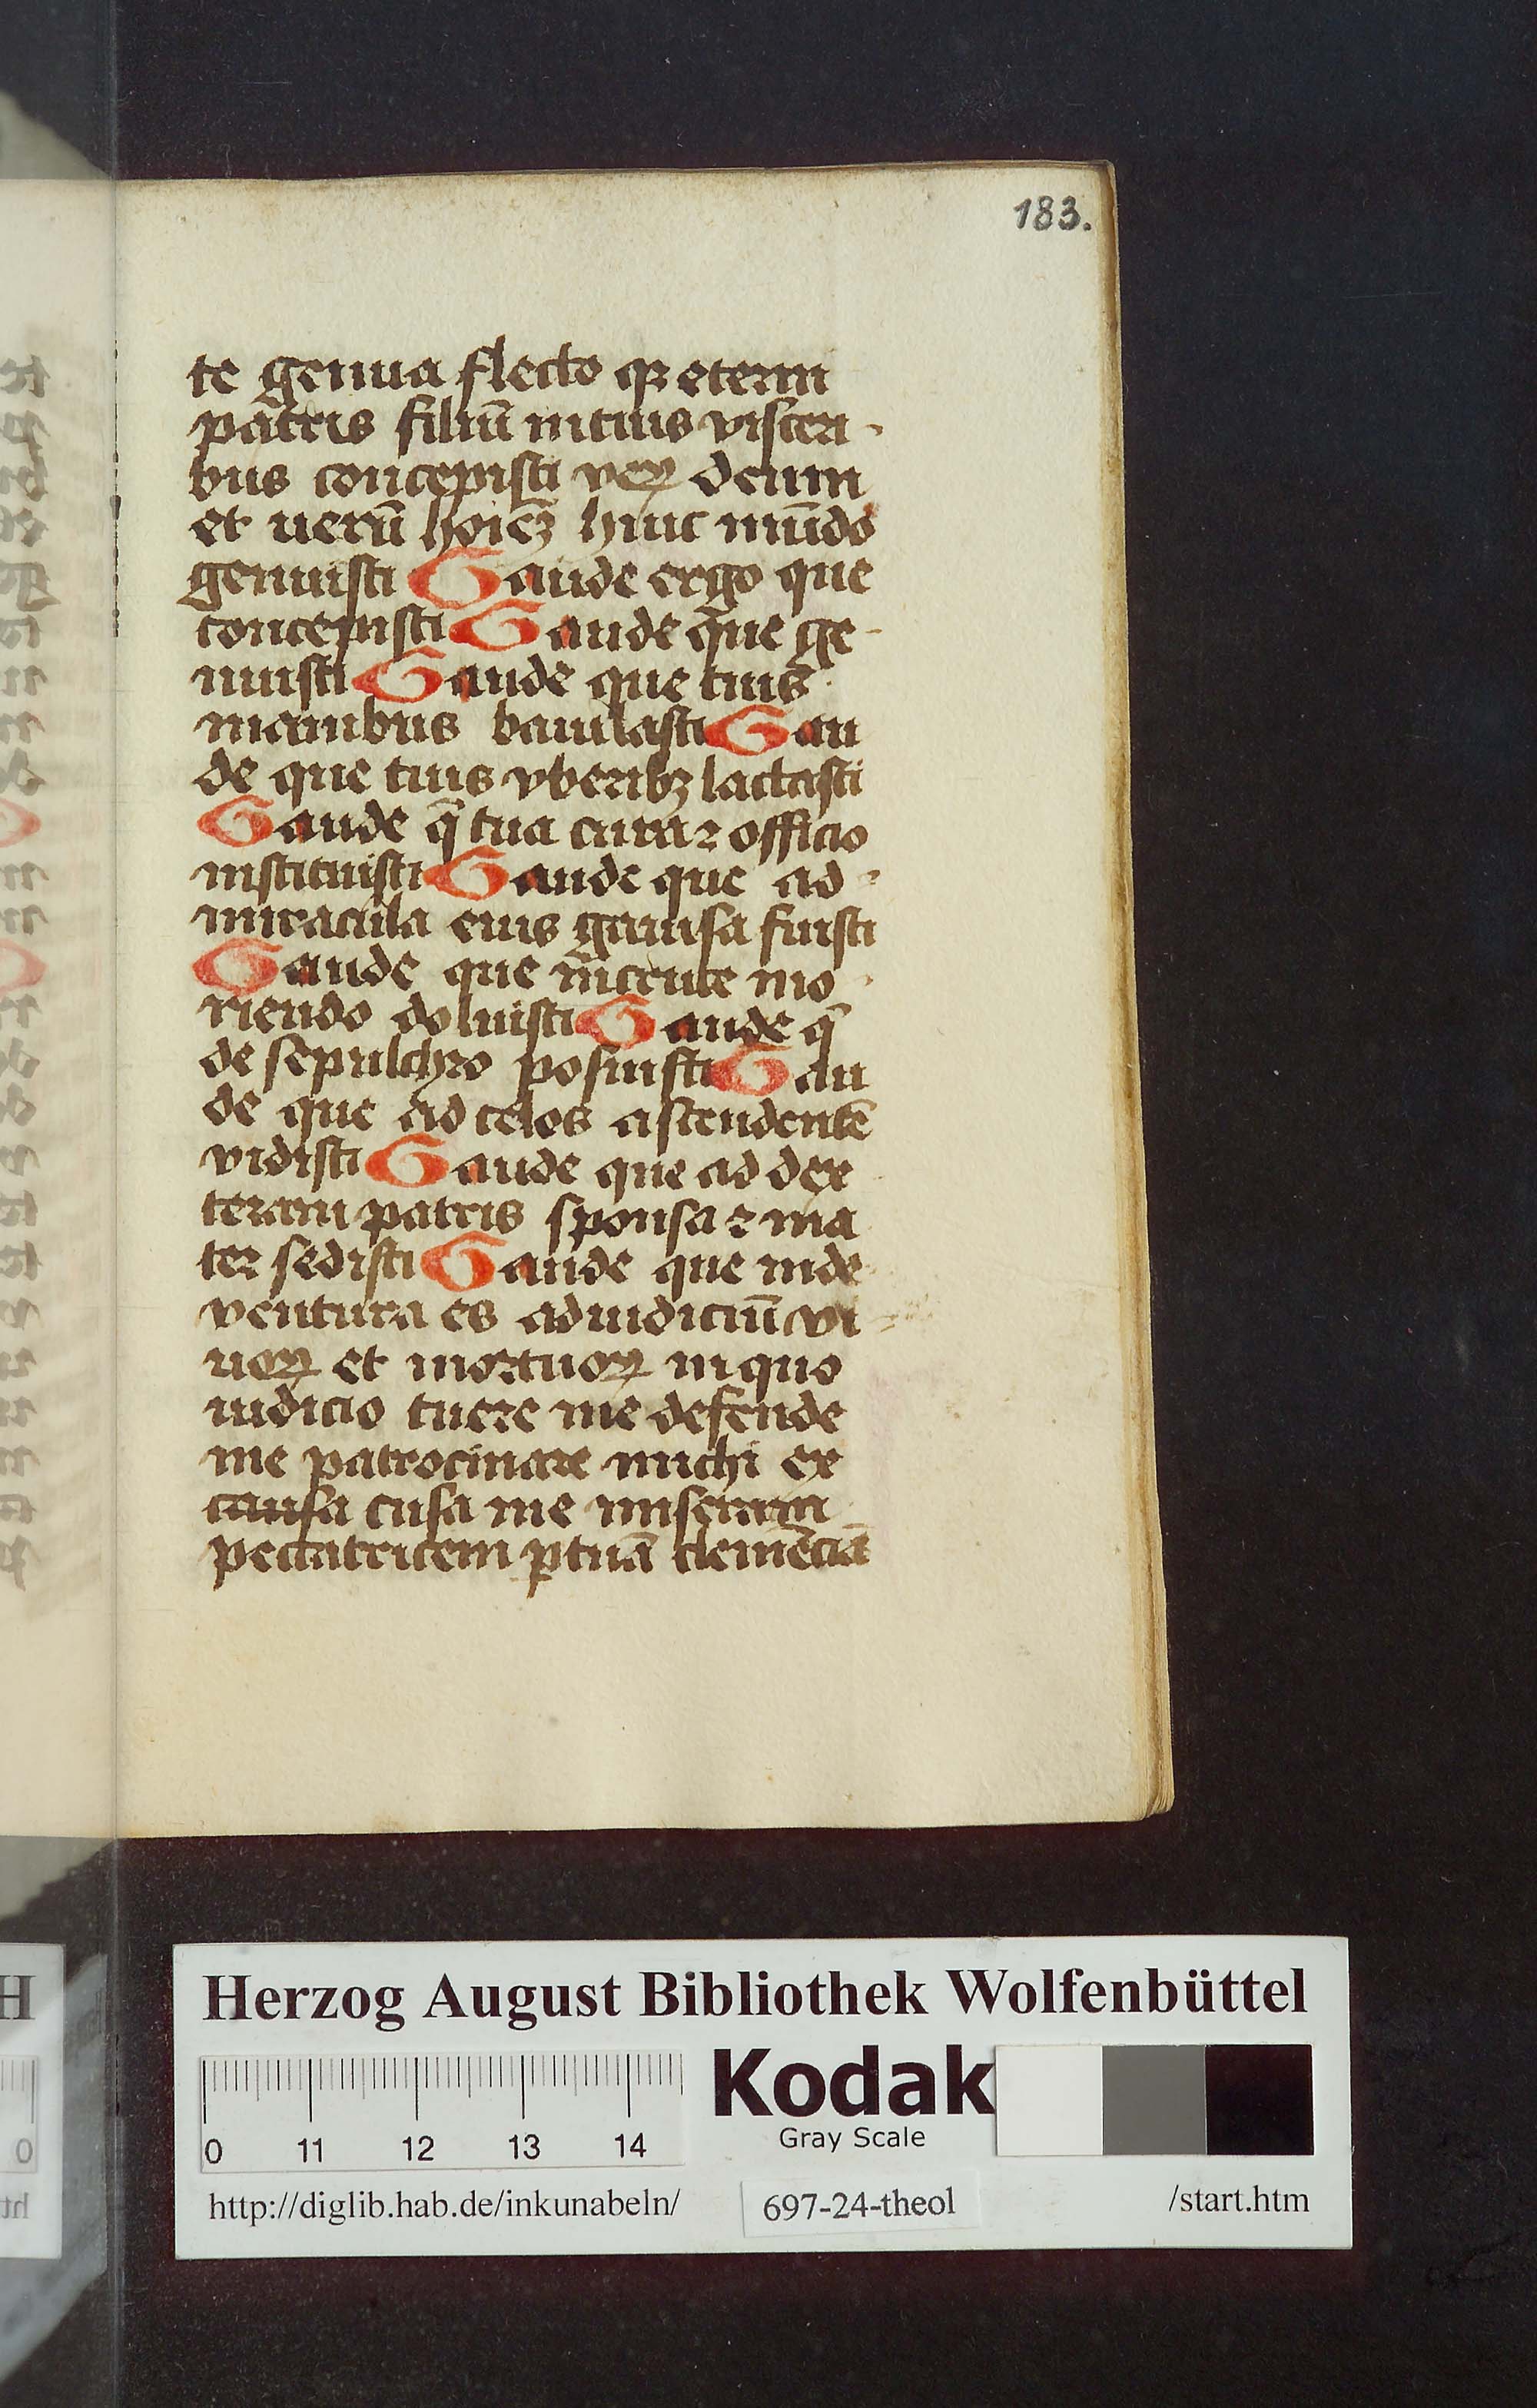 183.
te genua flecto qꝛ eterni
patris filiū intuis visceri
bus concepisti veꝝ deum
et uerū hoīeꝫ huic mūdo
genuisti Gaude ergo que
concepisti Gaude que ge
nuisti Gaude que tuis
manibus baiulasti Gau
de que tuis vberibꝫ lactasti
Gaude q̄ tua cura ⁊ officio
instituisti Gaude que ad
miracula eius gauisa fuisti
Gaude que mo
riendo doluisti Gaude q̄
de sepulchro posuisti Gau
de que ad celos ascendentē
vidisti Gaude que ad dex
teram patris sponsa ⁊ ma
ter sedisti Gaude que inde
ventura es adiudiciū vi
uoꝝ et mortuoꝝ inquo
iudicio tuere me defende
me patrocinare michi ex
causa cusa me miseram
peccatricem ꝑtuā clemēciā
Herzog August Bibliothek Wolfenbüttel
Kodak
Gray Scale
0 11 12 13 14
http://diglib.hab.de/inkunabeln/ 697-24-theol /start.htm